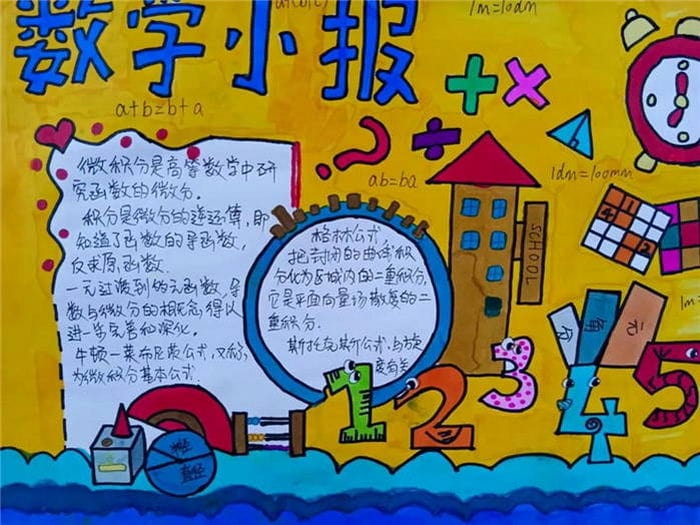 数学小报
a+(b+c)
1m=10dm
a+b=b+a
ab=ba
1dm=100mm
微积分是高等数学中研
究函数的微分.
积分是微分的逆运算,即
知道了函数的导函数,
反求原函数.
一元过渡到多元函数,导
数与微分的概念得以
进一步完善和深化.
牛顿一莱布尼茨公式,又称
为微积分基本公式.
格林公式
把封闭的曲线积
分化为区域内的二重积分,
它是平面向量场散度的二
重积分.
斯托克斯公式,与旋
度有关
SCHOOL
分
角
元
1m=
1
2
3
4
5
半径
直径